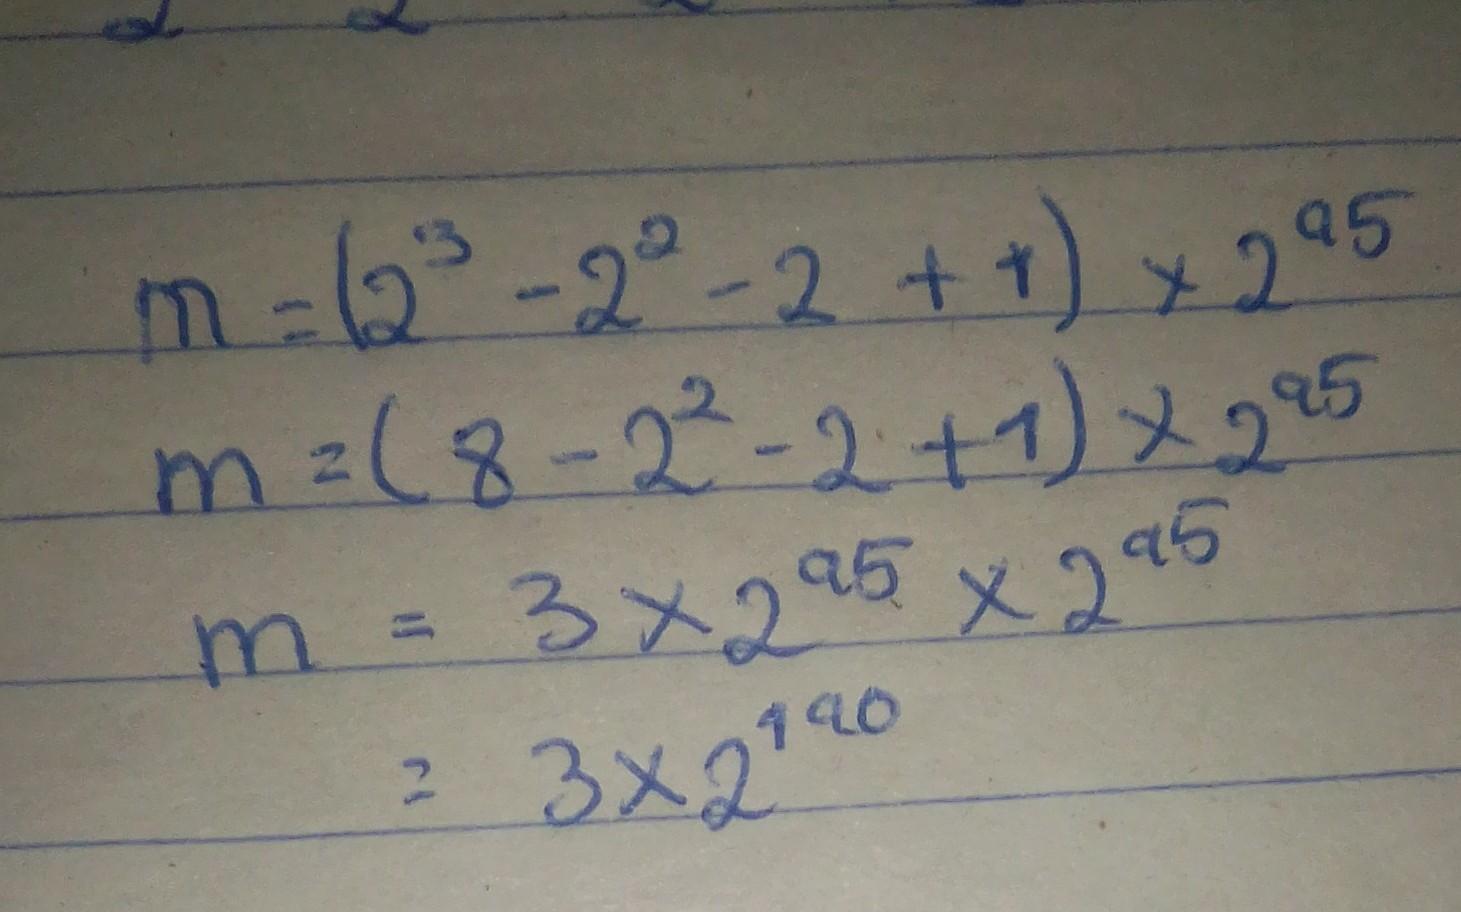 m = (2³ - 2² - 2 + 1) × 2⁹⁵
m = (8 - 2² - 2 + 1) × 2⁹⁵
m = 3 × 2⁹⁵ × 2⁹⁵
= 3 × 2¹⁹⁰